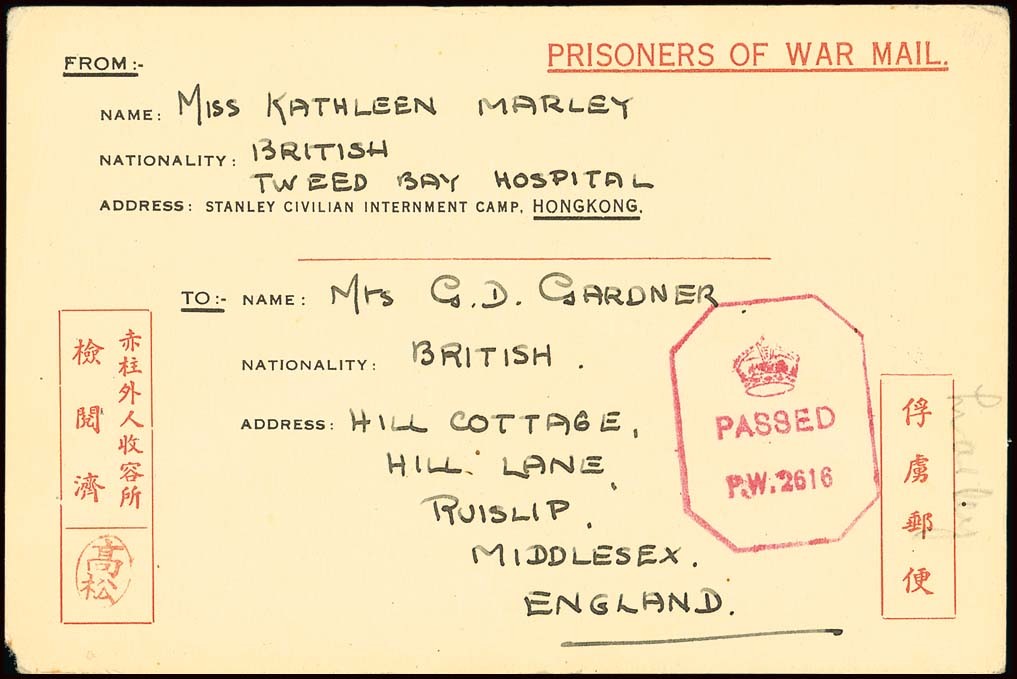 FROM:-
PRISONERS OF WAR MAIL.
NAME: MISS KATHLEEN MARLEY
NATIONALITY: BRITISH
TWEED BAY HOSPITAL
ADDRESS: STANLEY CIVILIAN INTERNMENT CAMP, HONGKONG.
TO:- NAME: Mrs G.D. GARDNER
NATIONALITY: BRITISH.
ADDRESS: HILL COTTAGE,
HILL LANE,
RUISLIP,
MIDDLESEX.
ENGLAND.
赤柱外人收容所
檢閱濟
高松
PASSED
P.W.2616
俘虜郵便